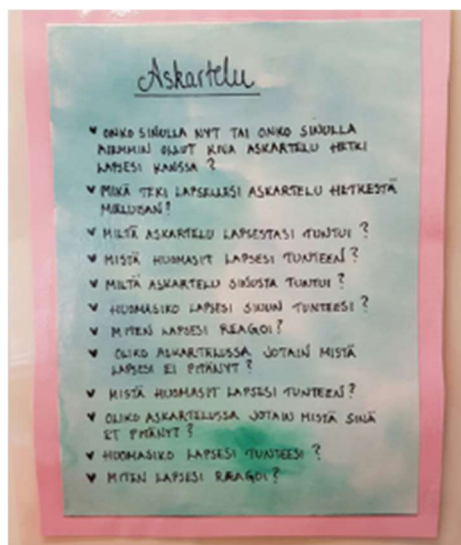 Askartelu
♥ ONKO SINULLA NYT TAI ONKO SINULLA
AIEMMIN OLLUT KIVA ASKARTELU HETKI
LAPSESI KANSSA?
♥ MIKÄ TEKI LAPSELLESI ASKARTELU HETKESTÄ
MIELUISAN?
♥ MILTÄ ASKARTELU LAPSESTASI TUNTUI?
♥ MISTÄ HUOMASIT LAPSESI TUNTEEN?
♥ MILTÄ ASKARTELU SINUSTA TUNTUI?
♥ HUOMASIKO LAPSESI SINUN TUNTEESI?
♥ MITEN LAPSESI REAGOI?
♥ OLIKO ASKARTELUSSA JOTAIN MISTÄ
LAPSESI EI PITÄNYT?
♥ MISTÄ HUOMASIT LAPSESI TUNTEEN?
♥ OLIKO ASKARTELUSSA JOTAIN MISTÄ SINÄ
ET PITÄNYT?
♥ HUOMASIKO LAPSESI TUNTEESI?
♥ MITEN LAPSESI REAGOI?